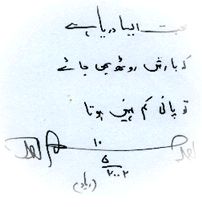 محبت ایسا دریا ہے
کہ بارش روٹھ بھی جائے
تو پانی کم نہیں ہوتا
۱۰
۵
۲۰۰۲